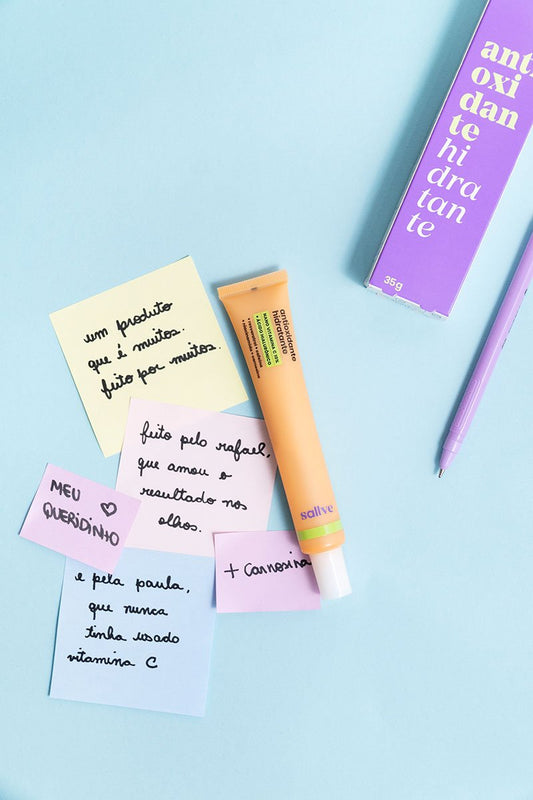 anti
oxi
dan
te
hi
dra
tan
te
35g
um produto
que é muitos.
feito por muitos.
antioxidante
hidratante
NANO VITAMINA C 10%
+ ÁCIDO HIALURÔNICO
feito pelo rafael,
que amou o
resultado nos
olhos.
MEU
QUERIDINHO
sallve
+ carnosina
e pela paula,
que nunca
tinha usado
vitamina C